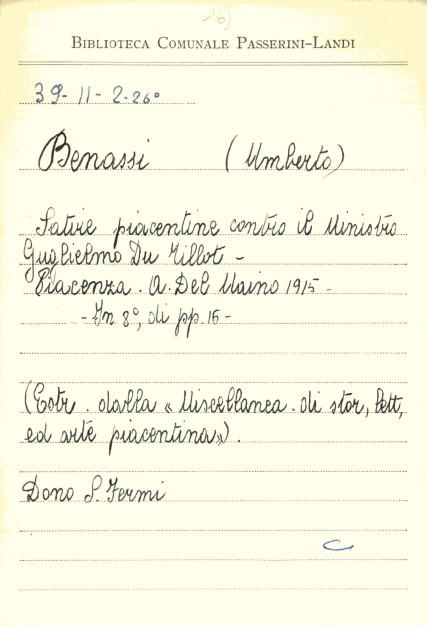 16)
BIBLIOTECA COMUNALE PASSERINI-LANDI
39-11-2-26°
Benassi (Umberto)
Satire piacentine contro il Ministro
Guglielmo Du Tillot -
Piacenza. A. Del Maino 1915 -
- In 8°, di pp. 16 -
(Estr. dalla « Miscellanea. di stor, lett,
ed arte piacentina»).
Dono S. Fermi